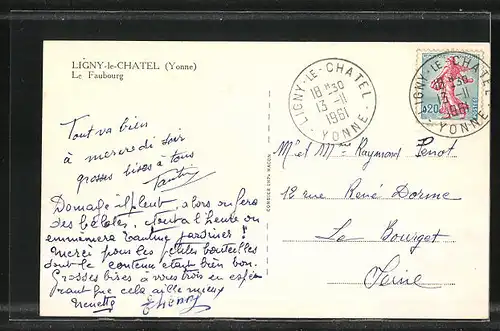 LIGNY-le-CHATEL (Yonne)
Le Faubourg
LIGNY-LE-CHATEL
18 H 30
13-11
1961
YONNE
LIGNY-LE-CHATEL
18 H 30
13-11
1961
YONNE
0,20
Tout va bien
à mercredi soir
grosses bises à tous
Domage il pleut, alors on fera
des belotes, tout à l'heure on
emmenera tantine jardiner !
Merci pour les petites bouteilles
dont le contenu était bien bon.
Grosses bises à vous trois en espé-
rant que cela aille mieux
Nenette
Mr et Mme Raymond Penot
12 rue René Dorme
Le Bourget
Seine